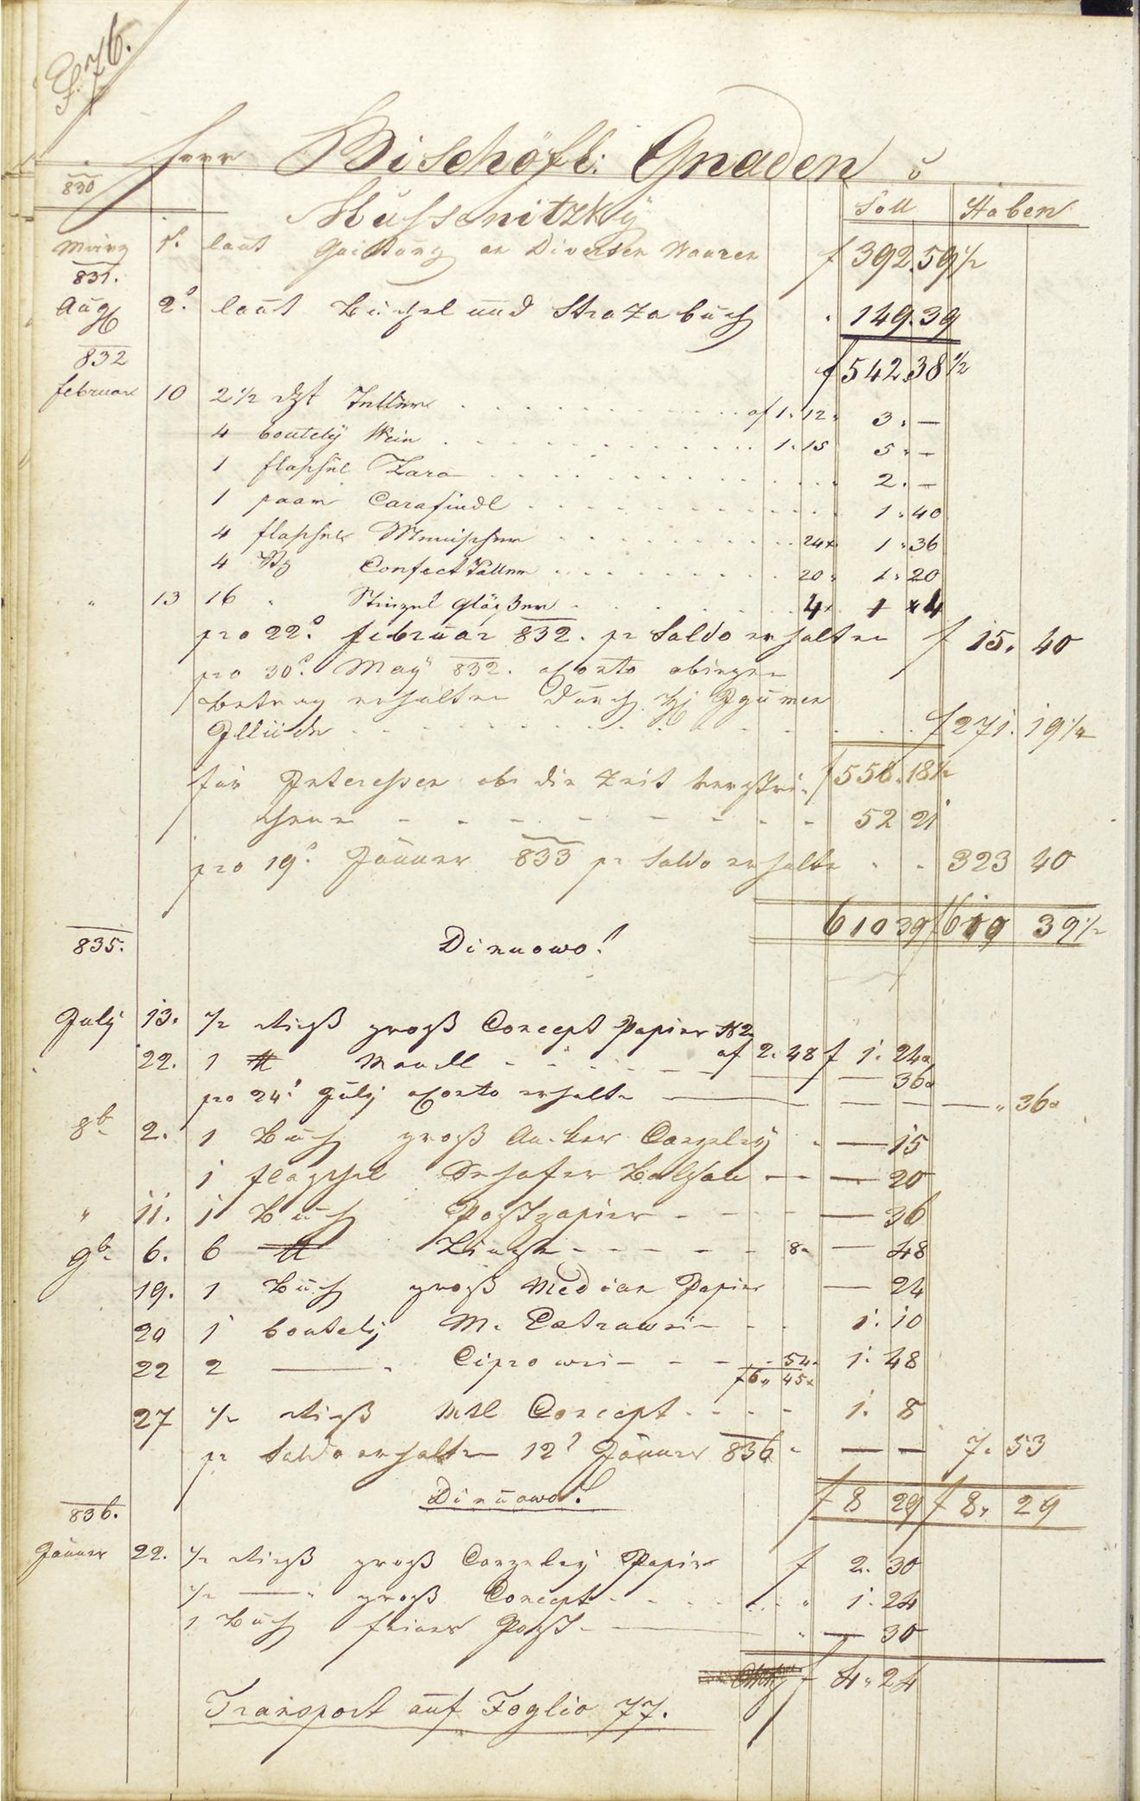 F. 76.
Herr Bischöfl: Gnaden
830 Mussenitzkÿ Soll Haben
März 1º laut an Diversen Waaren f 392.59½
831.
Aug 2º laut Büchel und Strazabuch 149.39
832 f 542.38½
februar 10 2½ dzt Teller af 1.12 3.—
4 boutelÿ Wein 1.15 5.—
1 flaschel Zara 2.—
1 paar Carafindl 1.40
4 flaschel 24x 1.36
4 Confect Teller 20 1.20
" 13 16 Stingel Gläser 4x 1 x4
pro 22º februar 832. pr Saldo erhalten f 15. 40
pro 30º Maÿ 832. aConto obigen
betrag erhalten durch Hj Igumen
f 271. 19½
für Interessen ob die Zeit verstri- f 558.18½
chene 52 21
pro 19º Jänner 833 pr Saldo erhalte 323 40
610 39 f 610 39½
835. Dinuowo!
Julÿ 13. ½ Rieß groß Concept Papier N2
af 2.48 f 1. 24
22. 1 ℔ Mandl — 36
pro 24º Julÿ aConto erhalte — — — " 36
8b 2. 1 Buch groß Canzeleÿ — 15
1 flaschel Balsam — 20
" 11. 1 Buch Postpapier — 36
9b 6. 6 ℔ 8 — 48
19. 1 Buch groß Median Papier — 24
20 1 boutelÿ 1. 10
22 2 — " Ciprowei 54 1. 48
f 6 " 45x
27 ½ Rieß Concept 1. 8
pr Saldo erhalten 12º Jänner 836 — — 7. 53
836. Dinuowo! f 8 29 f 8. 29
Jänner 22. ½ Rieß groß Canzeleÿ Papier f 2. 30
½ — " groß Concept " 1. 24
1 Buch feines Post " — 30
f 4. 24
Transport auf Foglio 77.